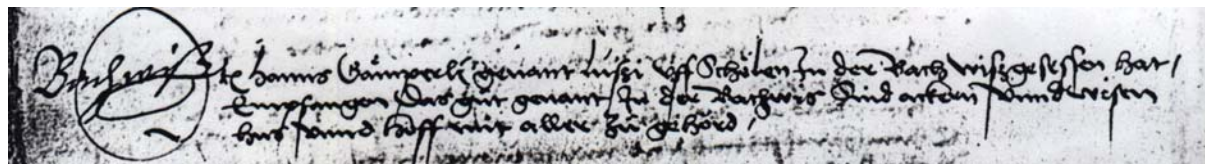 Bachwiß
Itẽ Hanns Gämperli genant lutzi uff Schölen In der Bach wiß gesessen hat /
Empfangen Das gůt genant In der Bachwis Sind ackern Vnnd wisen
hus Vnnd Hoff mit aller zů gehörd /